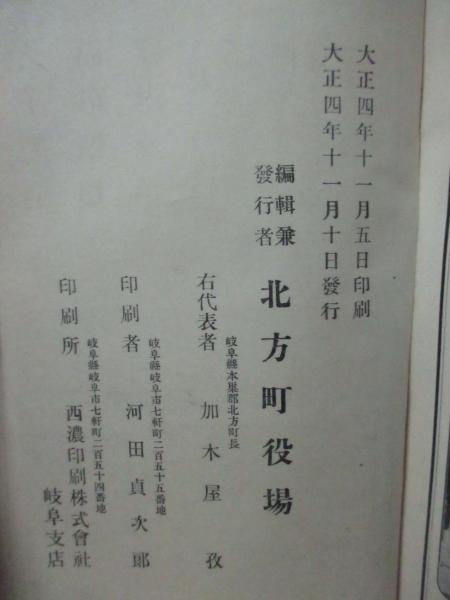 大正四年十一月五日印刷
大正四年十一月十日發行
編輯兼
發行者
北方町役場
岐阜縣本巢郡北方町長
右代表者 加木屋孜
岐阜縣岐阜市七軒町二百五十五番地
印刷者 河田貞次郎
岐阜縣岐阜市七軒町二百五十四番地
印刷所 西濃印刷株式會社
岐阜支店